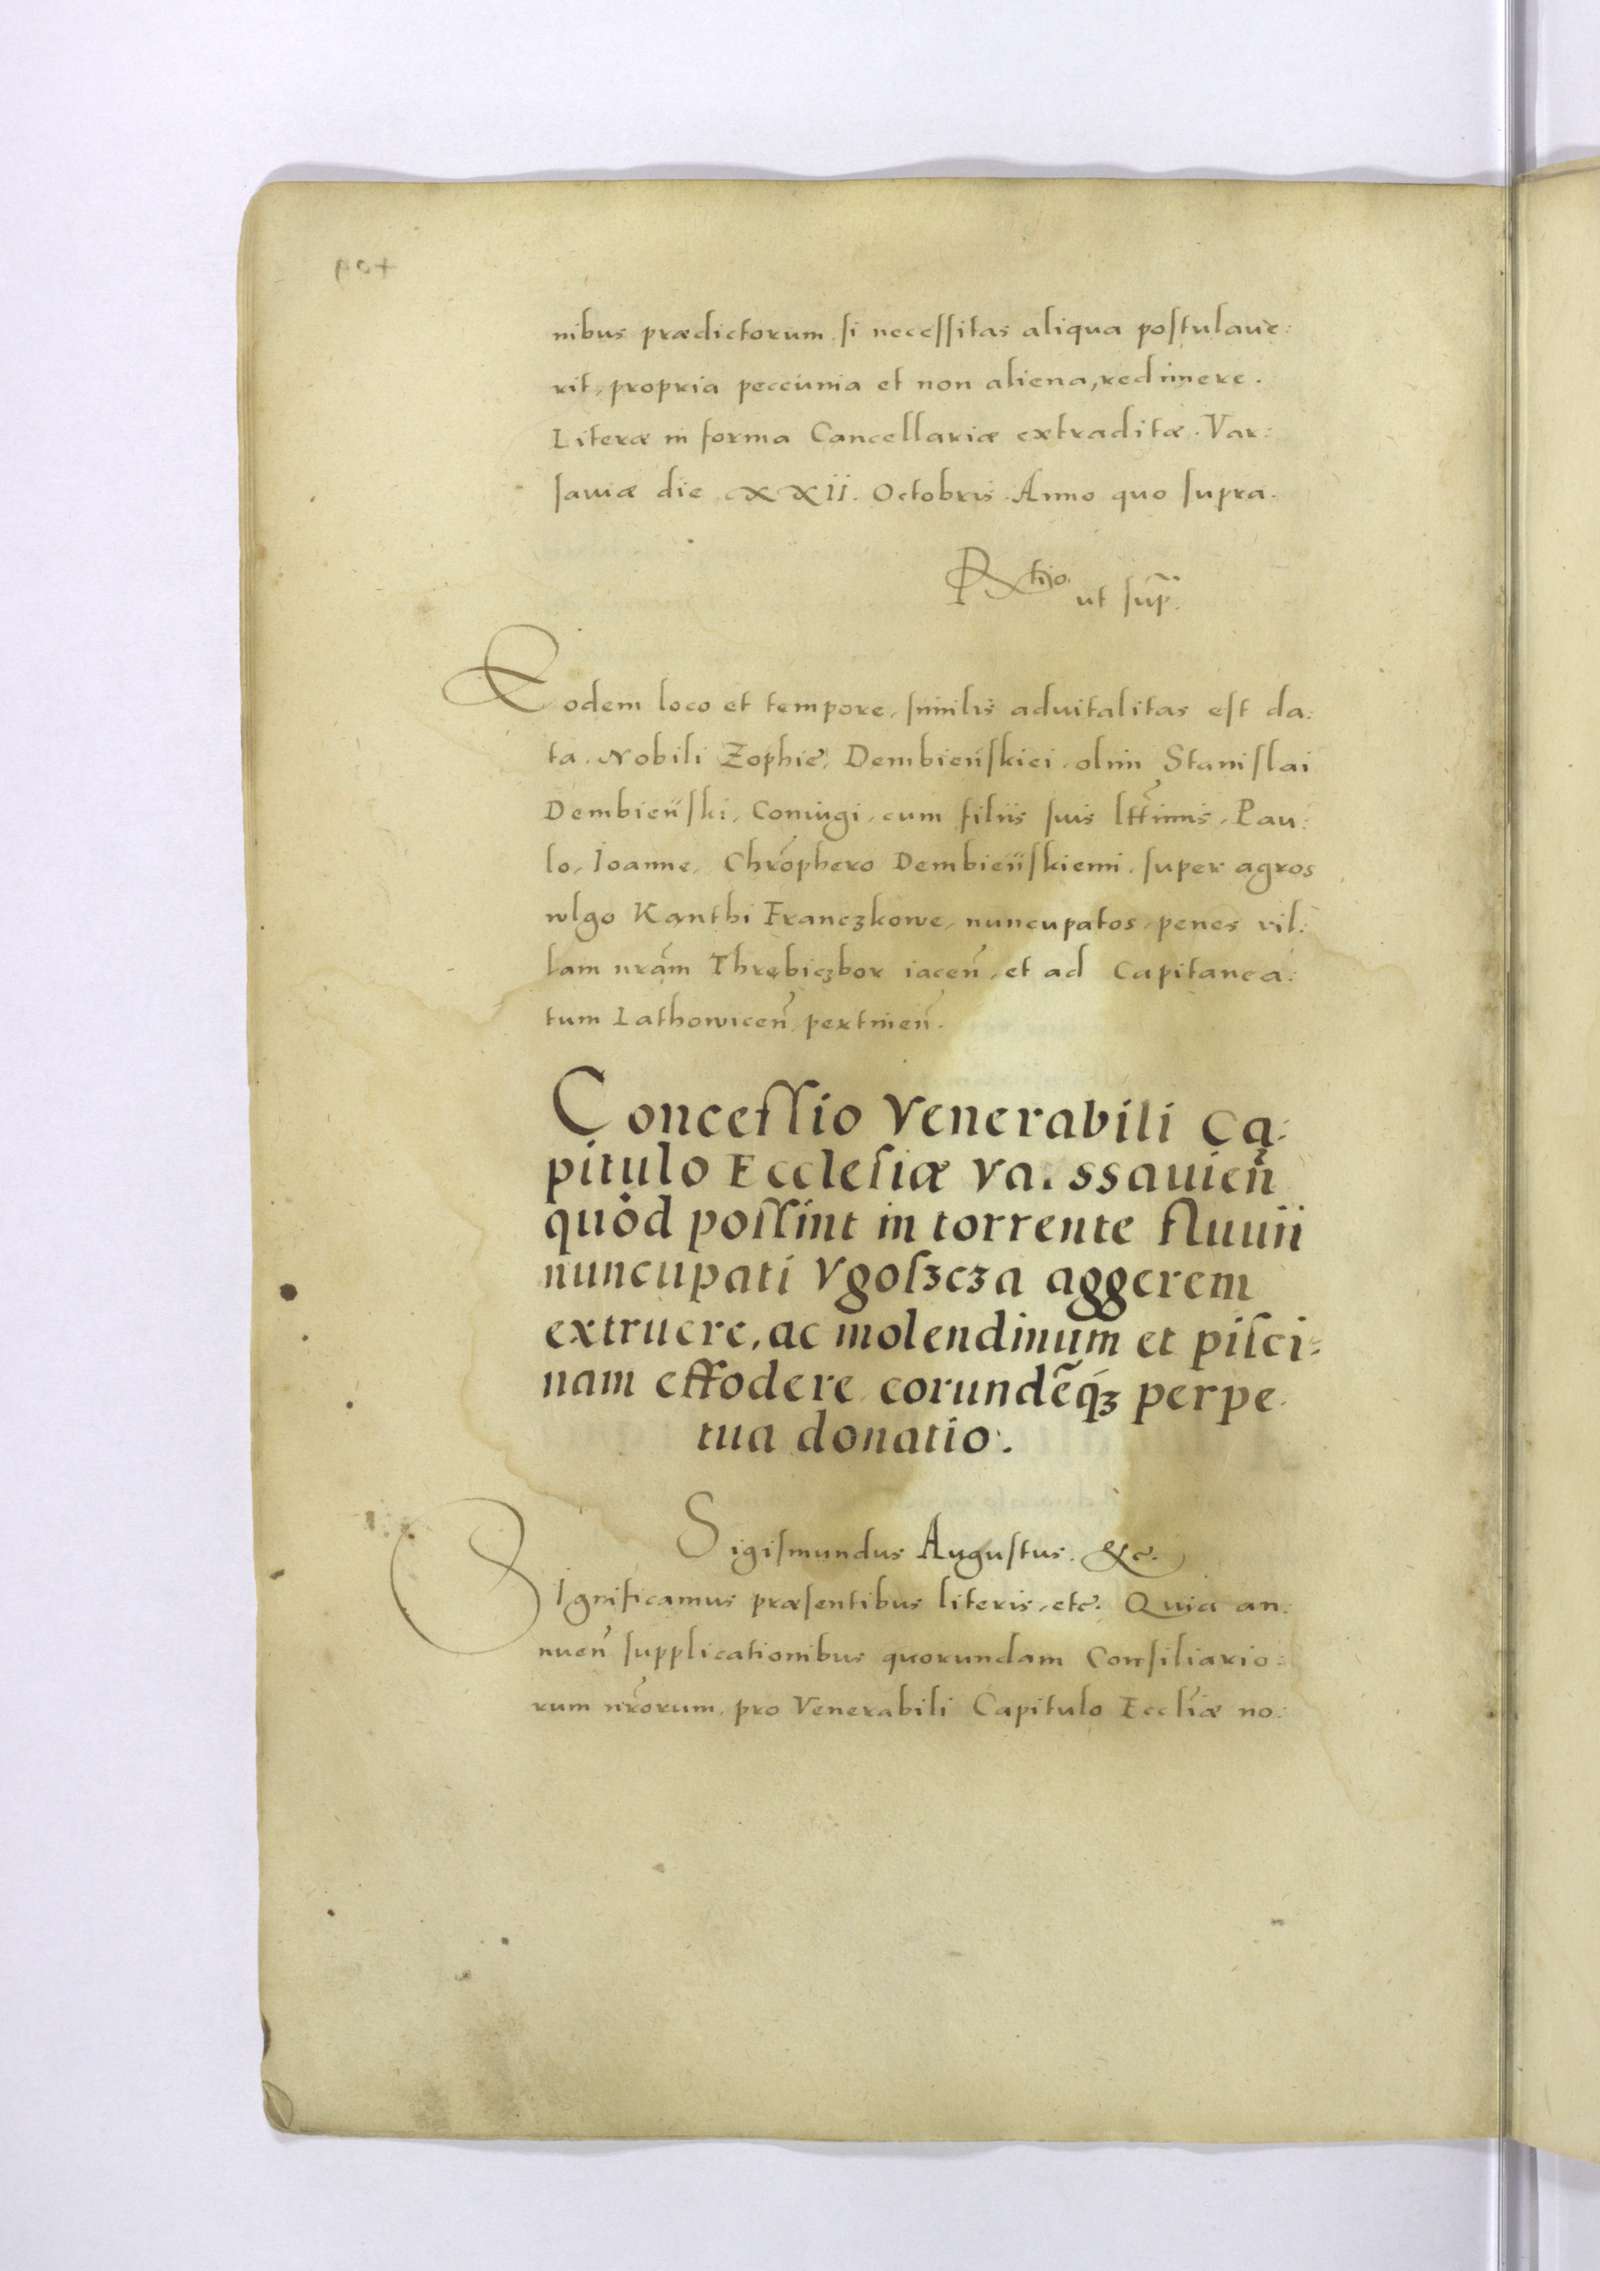 nibus prædictorum, si necessitas aliqua postulaue:
rit, propria peccunia et non aliena, redimere.
Literæ in forma Cancellariæ extraditæ. Var:
sauiæ die XXII. Octobris. Anno quo supra.
ut sup̃.
Eodem loco et tempore, similis aduitalitas est da:
ta. Nobili Zophię, Dembieńskiei, olim Stanislai
Dembieński, Coniugi, cum filiis suis lttĩmis, Pau:
lo, Ioanne, Chrõphero Dembieńskiemi, super agros
wlgo Kanthi Franczkowe, nuncupatos, penes vil:
lam nrãm Thrębiczbor iaceñ, et ad Capitanea:
tum Lathowiceñ pertineñ.
Concessio Venerabili Ca:
pitulo Ecclesiæ Varssauieñ
quòd possint in torrente fluuii
nuncupati Vgoszcza aggerem
extruere, ac molendinum et pisci:
nam effodere eorundẽq́ꝫ perpe:
tua donatio.
Sigismundus Augustus. &c.
SIgnificamus præsentibus literis, etc. Quia an:
nueñ supplicationibus quorundam Consiliario:
rum nrõrum, pro Venerabili Capitulo Eccliæ no: